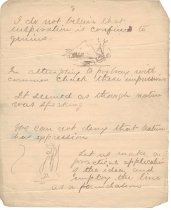 I do not believe that
inspiration is confined to
genius.
In attempting to portray with
common chalk these impressions
It seemed as though nature
was speaking
You can not deny that nature
has expression
Let us make a
practical application
of the idea and
employ the line
as a foundation